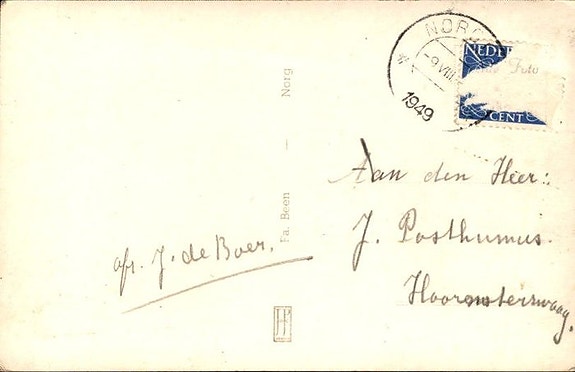 NORG
-9 VIII
1949
NEDER
Foto
CENT
Fa. Been — Norg
Aan den Heer:
J. Posthumus.
Hoornsterswaag.
afr. J. de Boer.